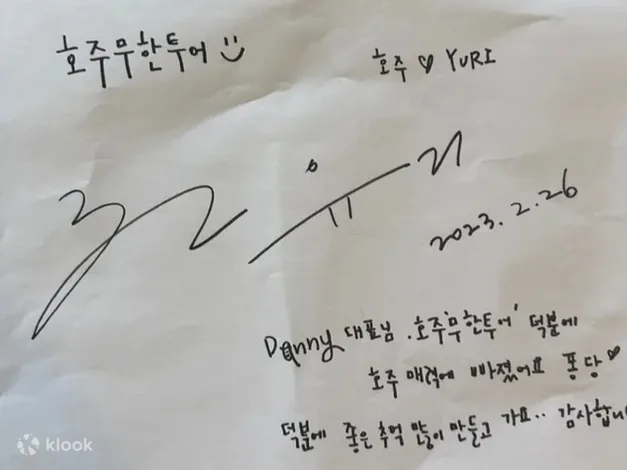 호주무한투어 :)
호주 ♡ YURI
권유리
2023. 2. 26
Danny 대표님. 호주'무한투어' 덕분에
호주 매력에 빠졌어요 퐁당♡
덕분에 좋은 추억 많이 만들고 가요.. 감사합니
klook